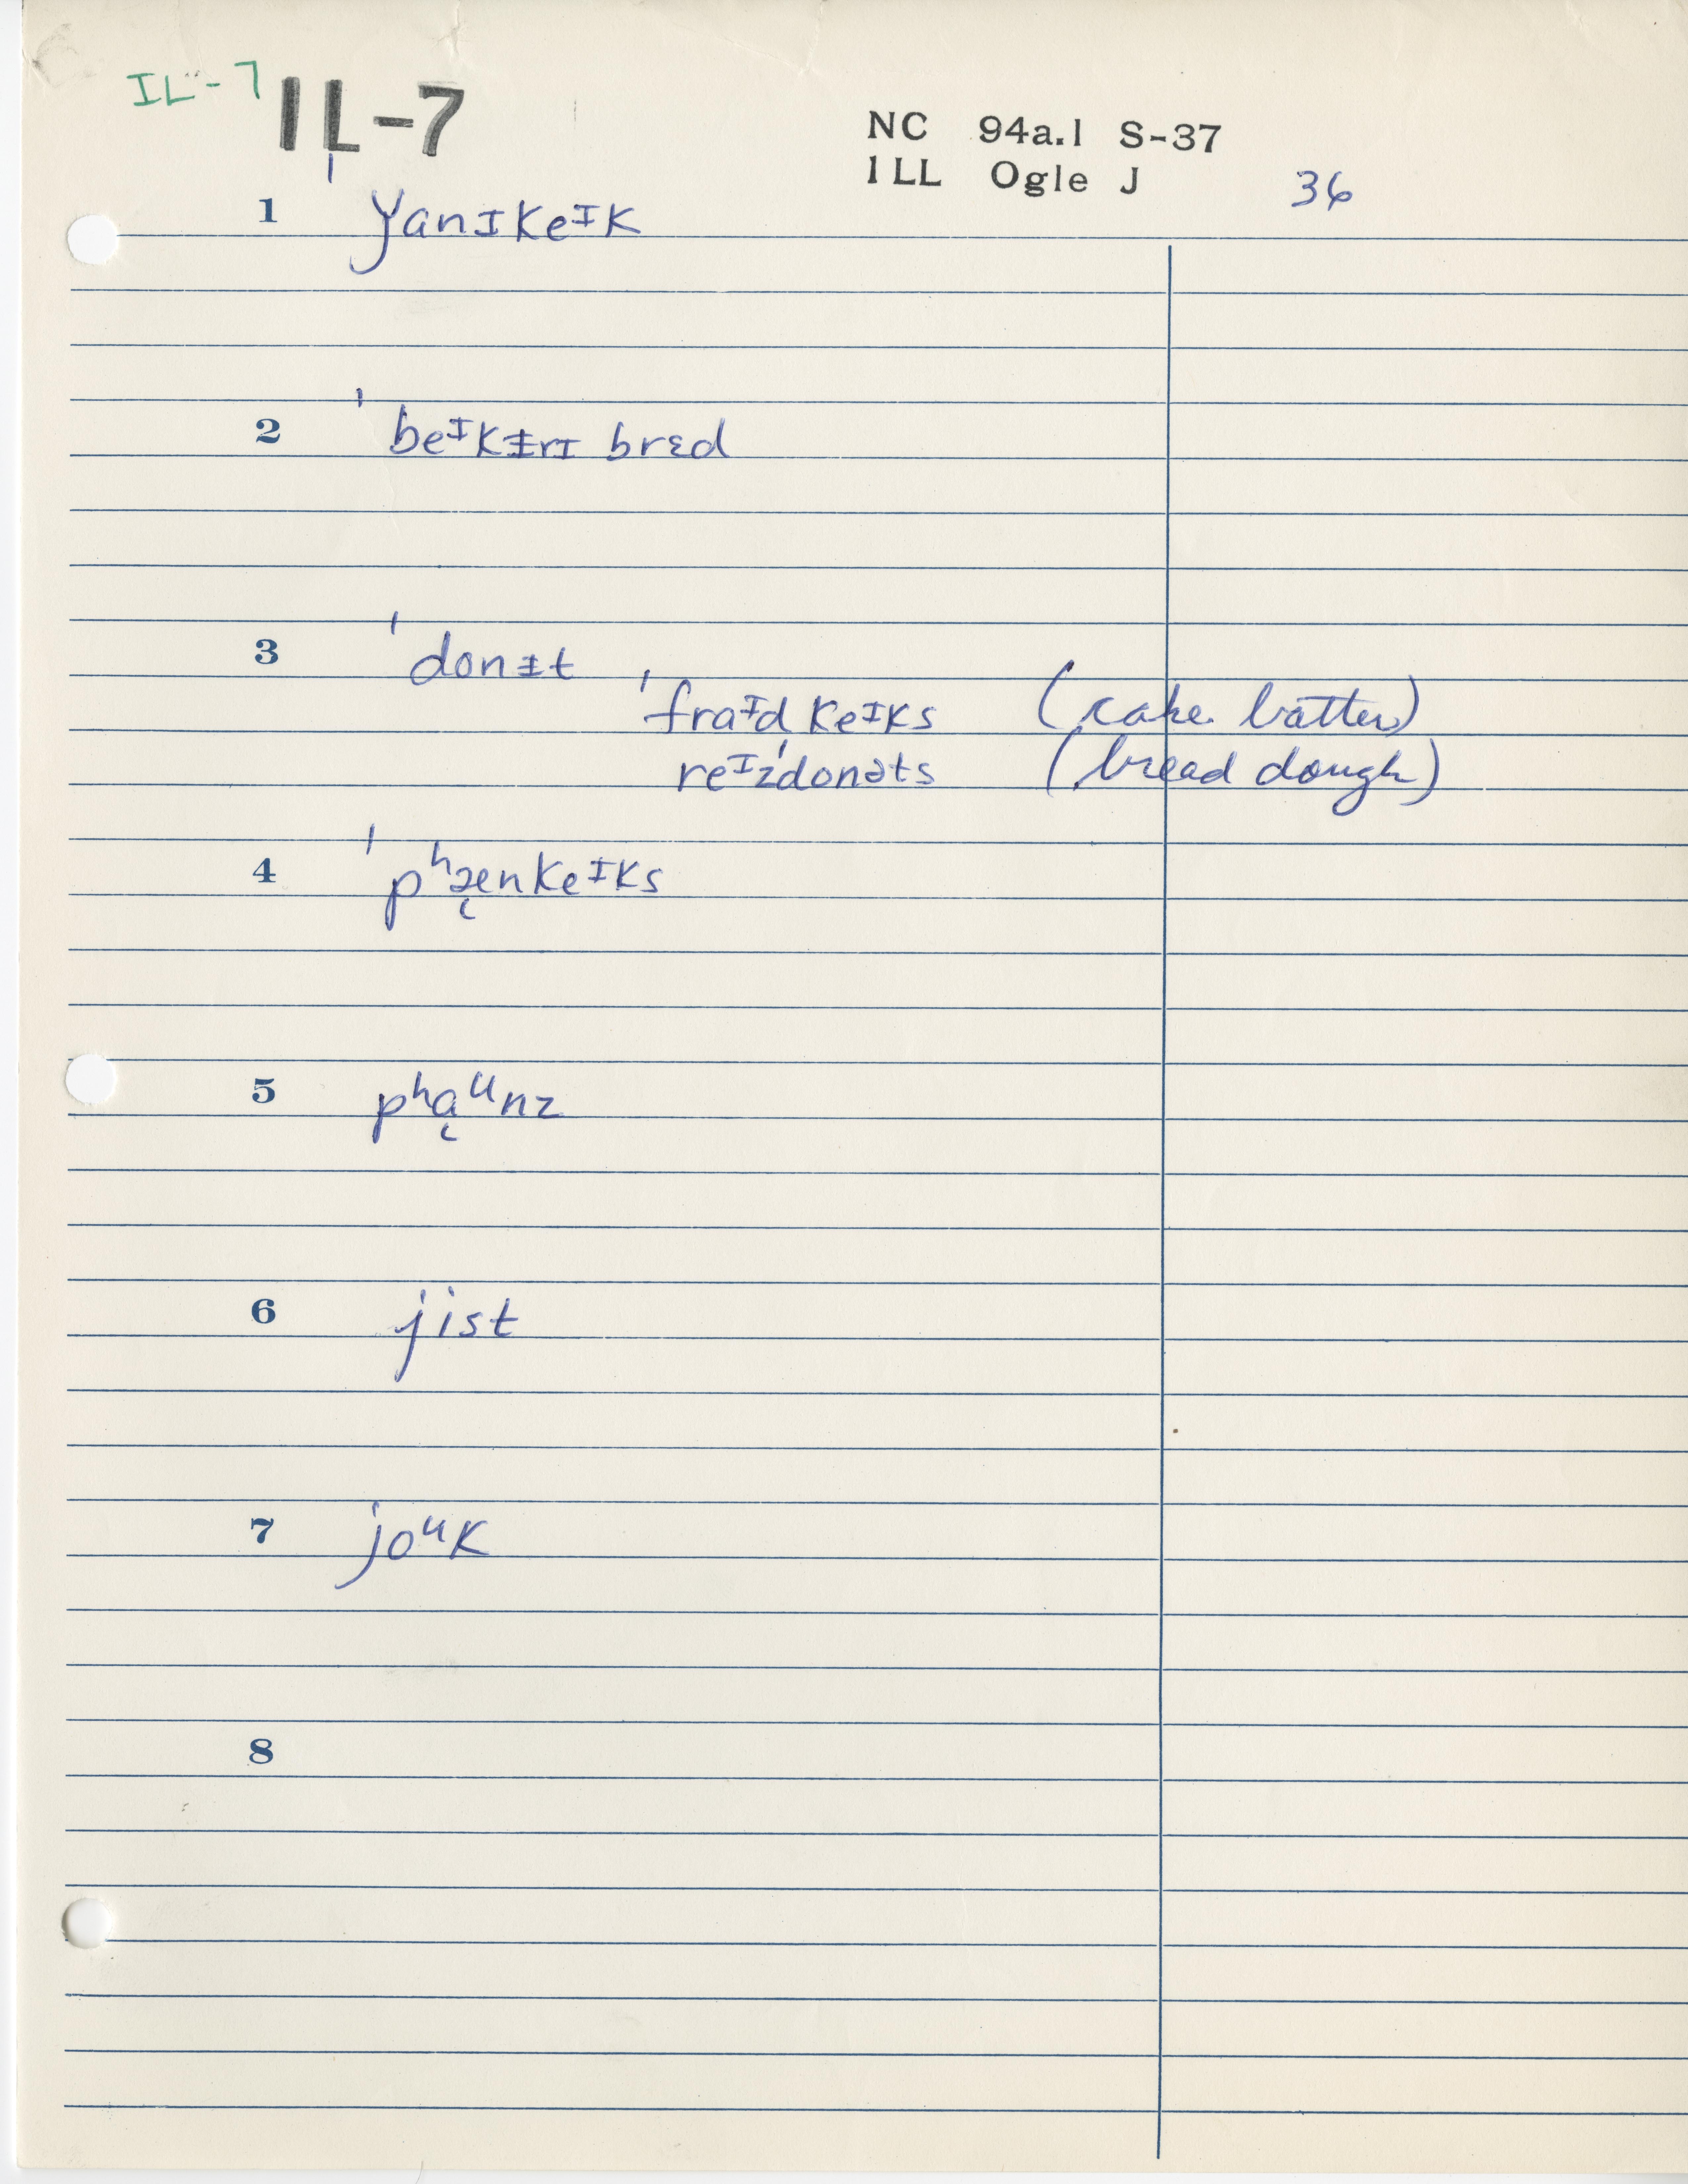 IL-7 IL-7
NC 94a.1 S-37
ILL Ogle J 36
1 ˈɣanɪkeᴵk
2 ˈbeᴵkᵻrɪ brɛd
3 ˈdonᵻt
ˈfraᴵd keᴵks (cake batter)
reᴵzˈdonəts (bread dough)
4 ˈpʰæ̨nkeᴵks
5 pʰɑ̨ᵘnz
6 jist
7 joᵘk
8